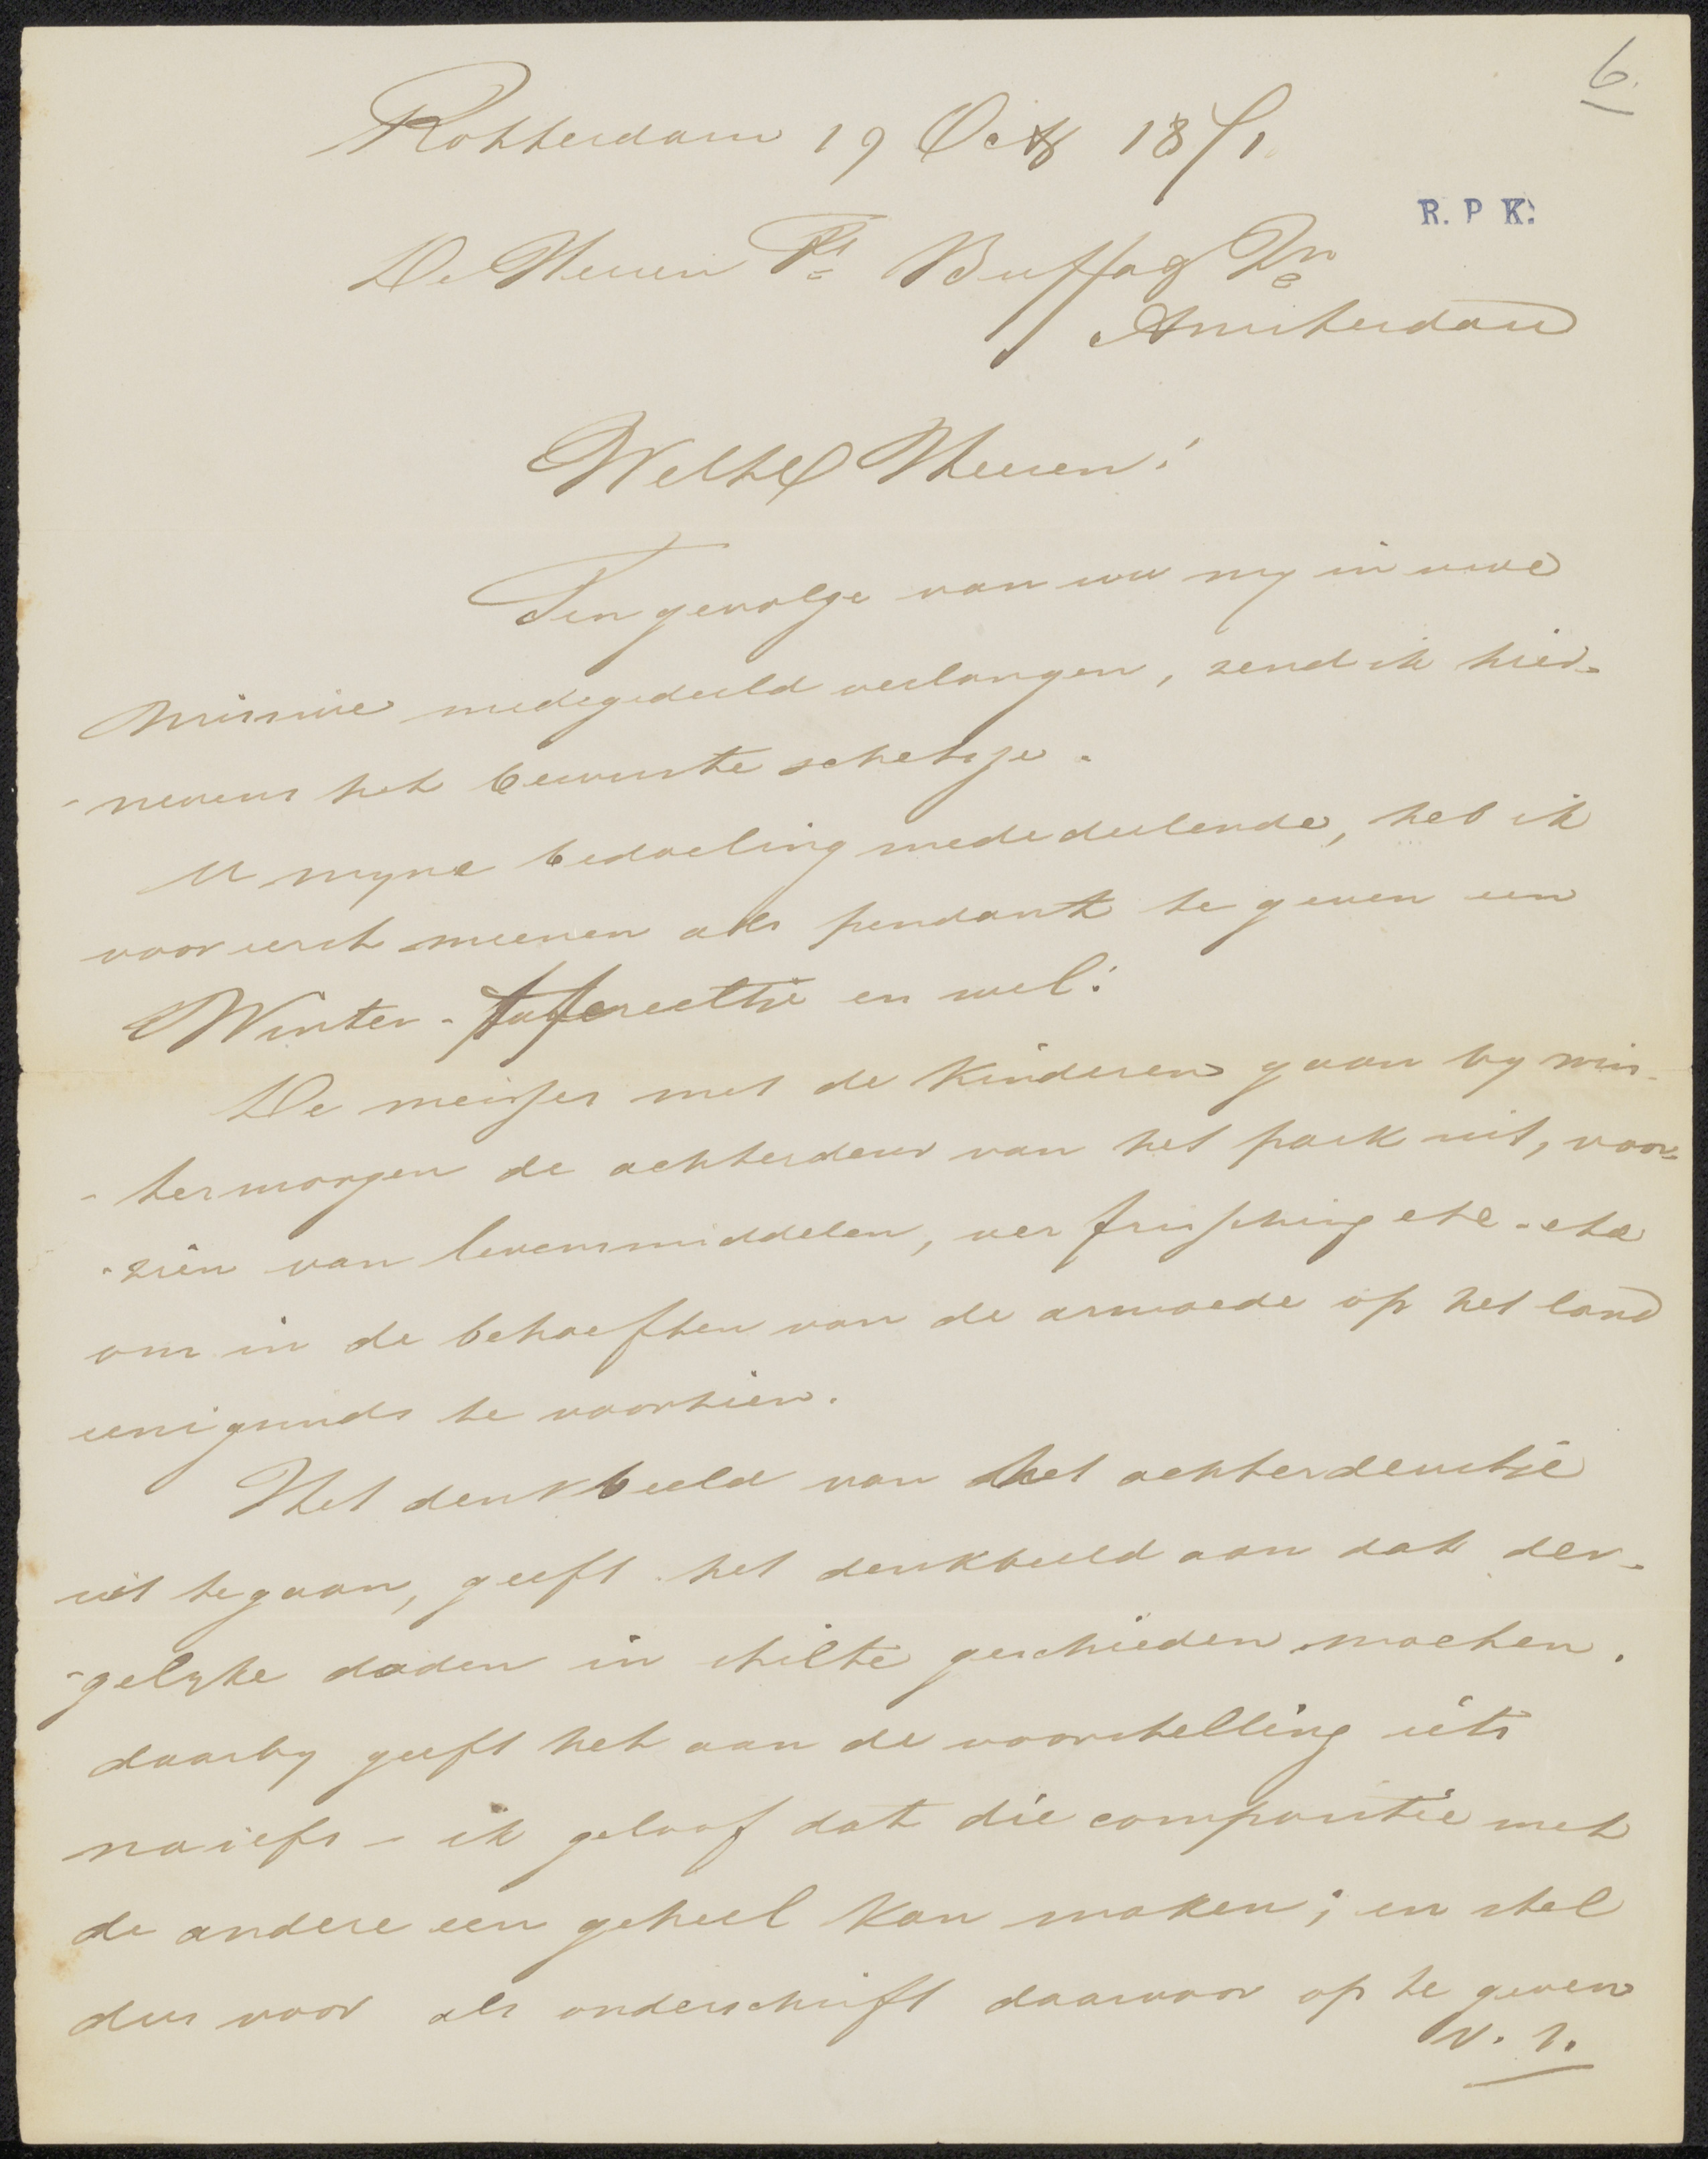 6.
Rotterdam 19 Octb 1871.
R. P K.
De Heeren Fs Buffa & Zn
Amsterdam
WelEd Heeren!
Ten gevolge van uw my in uwe
missive medegedeeld verlangen, zend ik hier-
-nevens het bewuste schetsje.
U myne bedoeling mededeelende, heb ik
vooreerst meenen als pendant te geven een
Winter-tafereeltje en wel:
De meisjes met de kinderen gaan by win-
-termorgen de achterdeur van het park uit, voor-
-zien van levensmiddelen, verfrissching etc-etc
om in de behoeften van de armoede op het land
eenigzinds te voorzien.
Het denkbeeld van het achterdeurtje
uit te gaan, geeft het denkbeeld aan dat der-
-gelyke daden in stilte geschieden moeten.
daarby geeft het aan de voorstelling iets
naiefs - ik geloof dat die compositie met
de andere een geheel kan maken; en stel
dus voor als onderschrift daarvoor op te geven